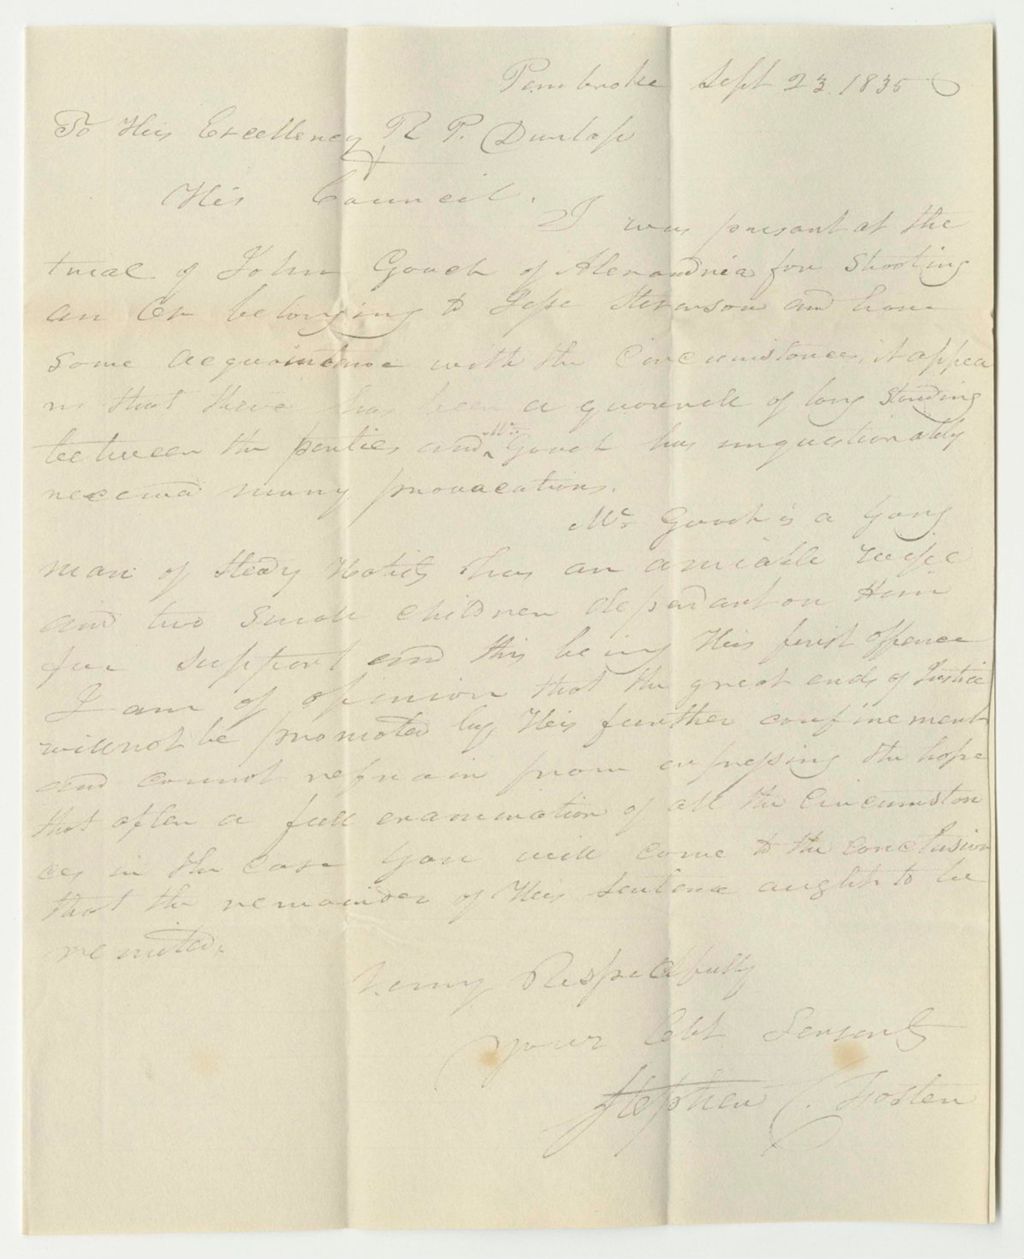 Pembroke Sept 23. 1835
To His Excellency R P. Dunlap
&
His Council.
I was present at the
trial of John Gooch of Alexandria for Shooting
an Ox belonging to Jesse Stevenson and have
some acquaintance with the Circumstances, it appea
rs that there has been a quarrell of long Standing
between the parties and Mr Gooch has unquestionably
received many provocations.
Mr Gooch is a Yong
man of Steady Habits has an amiable wife
and two small children dependant on Him
for support and this being His first offence
I am of opinion that the great ends of Justice
will not be promoted by His further confinement
and cannot refrain from expressing the hope
that after a full examination of all the Circumstan
ces in the case you will come to the conclusion
that the remainder of His sentence aught to be
remited.
Very Respectfully
your Obt Servant
Stephen C. Foster